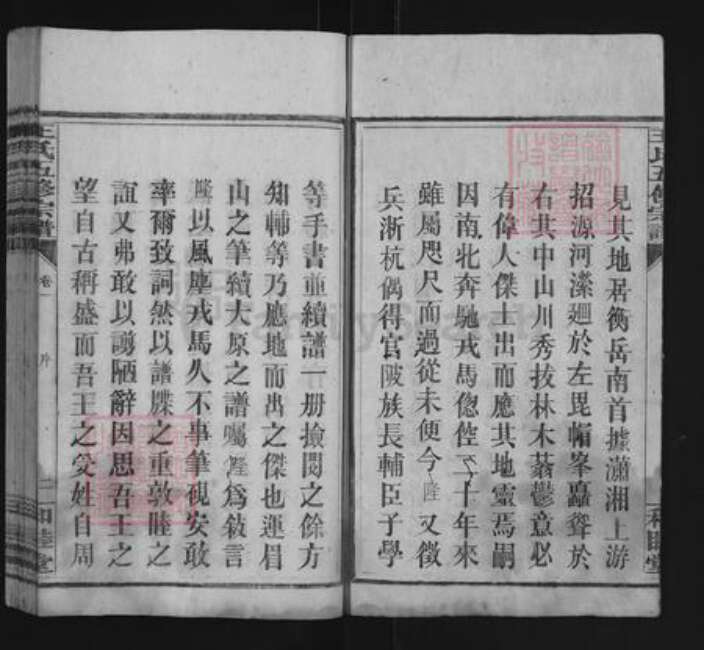 見其地居衡岳南首據瀟湘上游
招源河瀠廻於左毘帽峯矗聳於
右其中山川秀拔林木蓊鬱意必
有偉人傑士出而應其地靈焉嗣
因南北奔馳戎馬倥偬二十年來
雖屬咫尺而過從未便今隆又徵
兵浙杭偶得官陂族長輔臣子學
等手書並續譜一册撿閱之餘方
知輔等乃應地而出之傑也運眉
山之筆續大原之譜囑隆為敍言
隆以風塵戎馬久不事筆硯安敢
率爾致詞然以譜牒之重敦睦之
誼又弗敢以謭陋辭因思吾王之
望自古稱盛而吾王之受姓自周
王氏五修宗譜
卷一
二
和睦堂
王氏五修宗譜
和睦堂